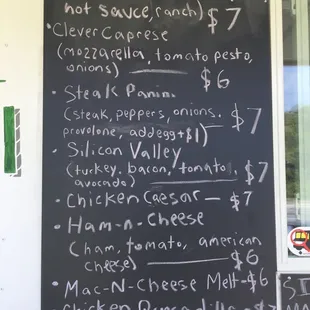 hot sauce, ranch) $7
• Clever Caprese
(mozzarella, tomato pesto,
onions) — $6
• Steak Panini
(steak, peppers, onions,
provolone, add egg +$1) — $7
• Silicon Valley
(turkey, bacon, tomato,
avocado) — $7
• Chicken Caesar — $7
• Ham-n-Cheese
(ham, tomato, american
cheese) — $6
• Mac-N-Cheese Melt - $6
• Chicken